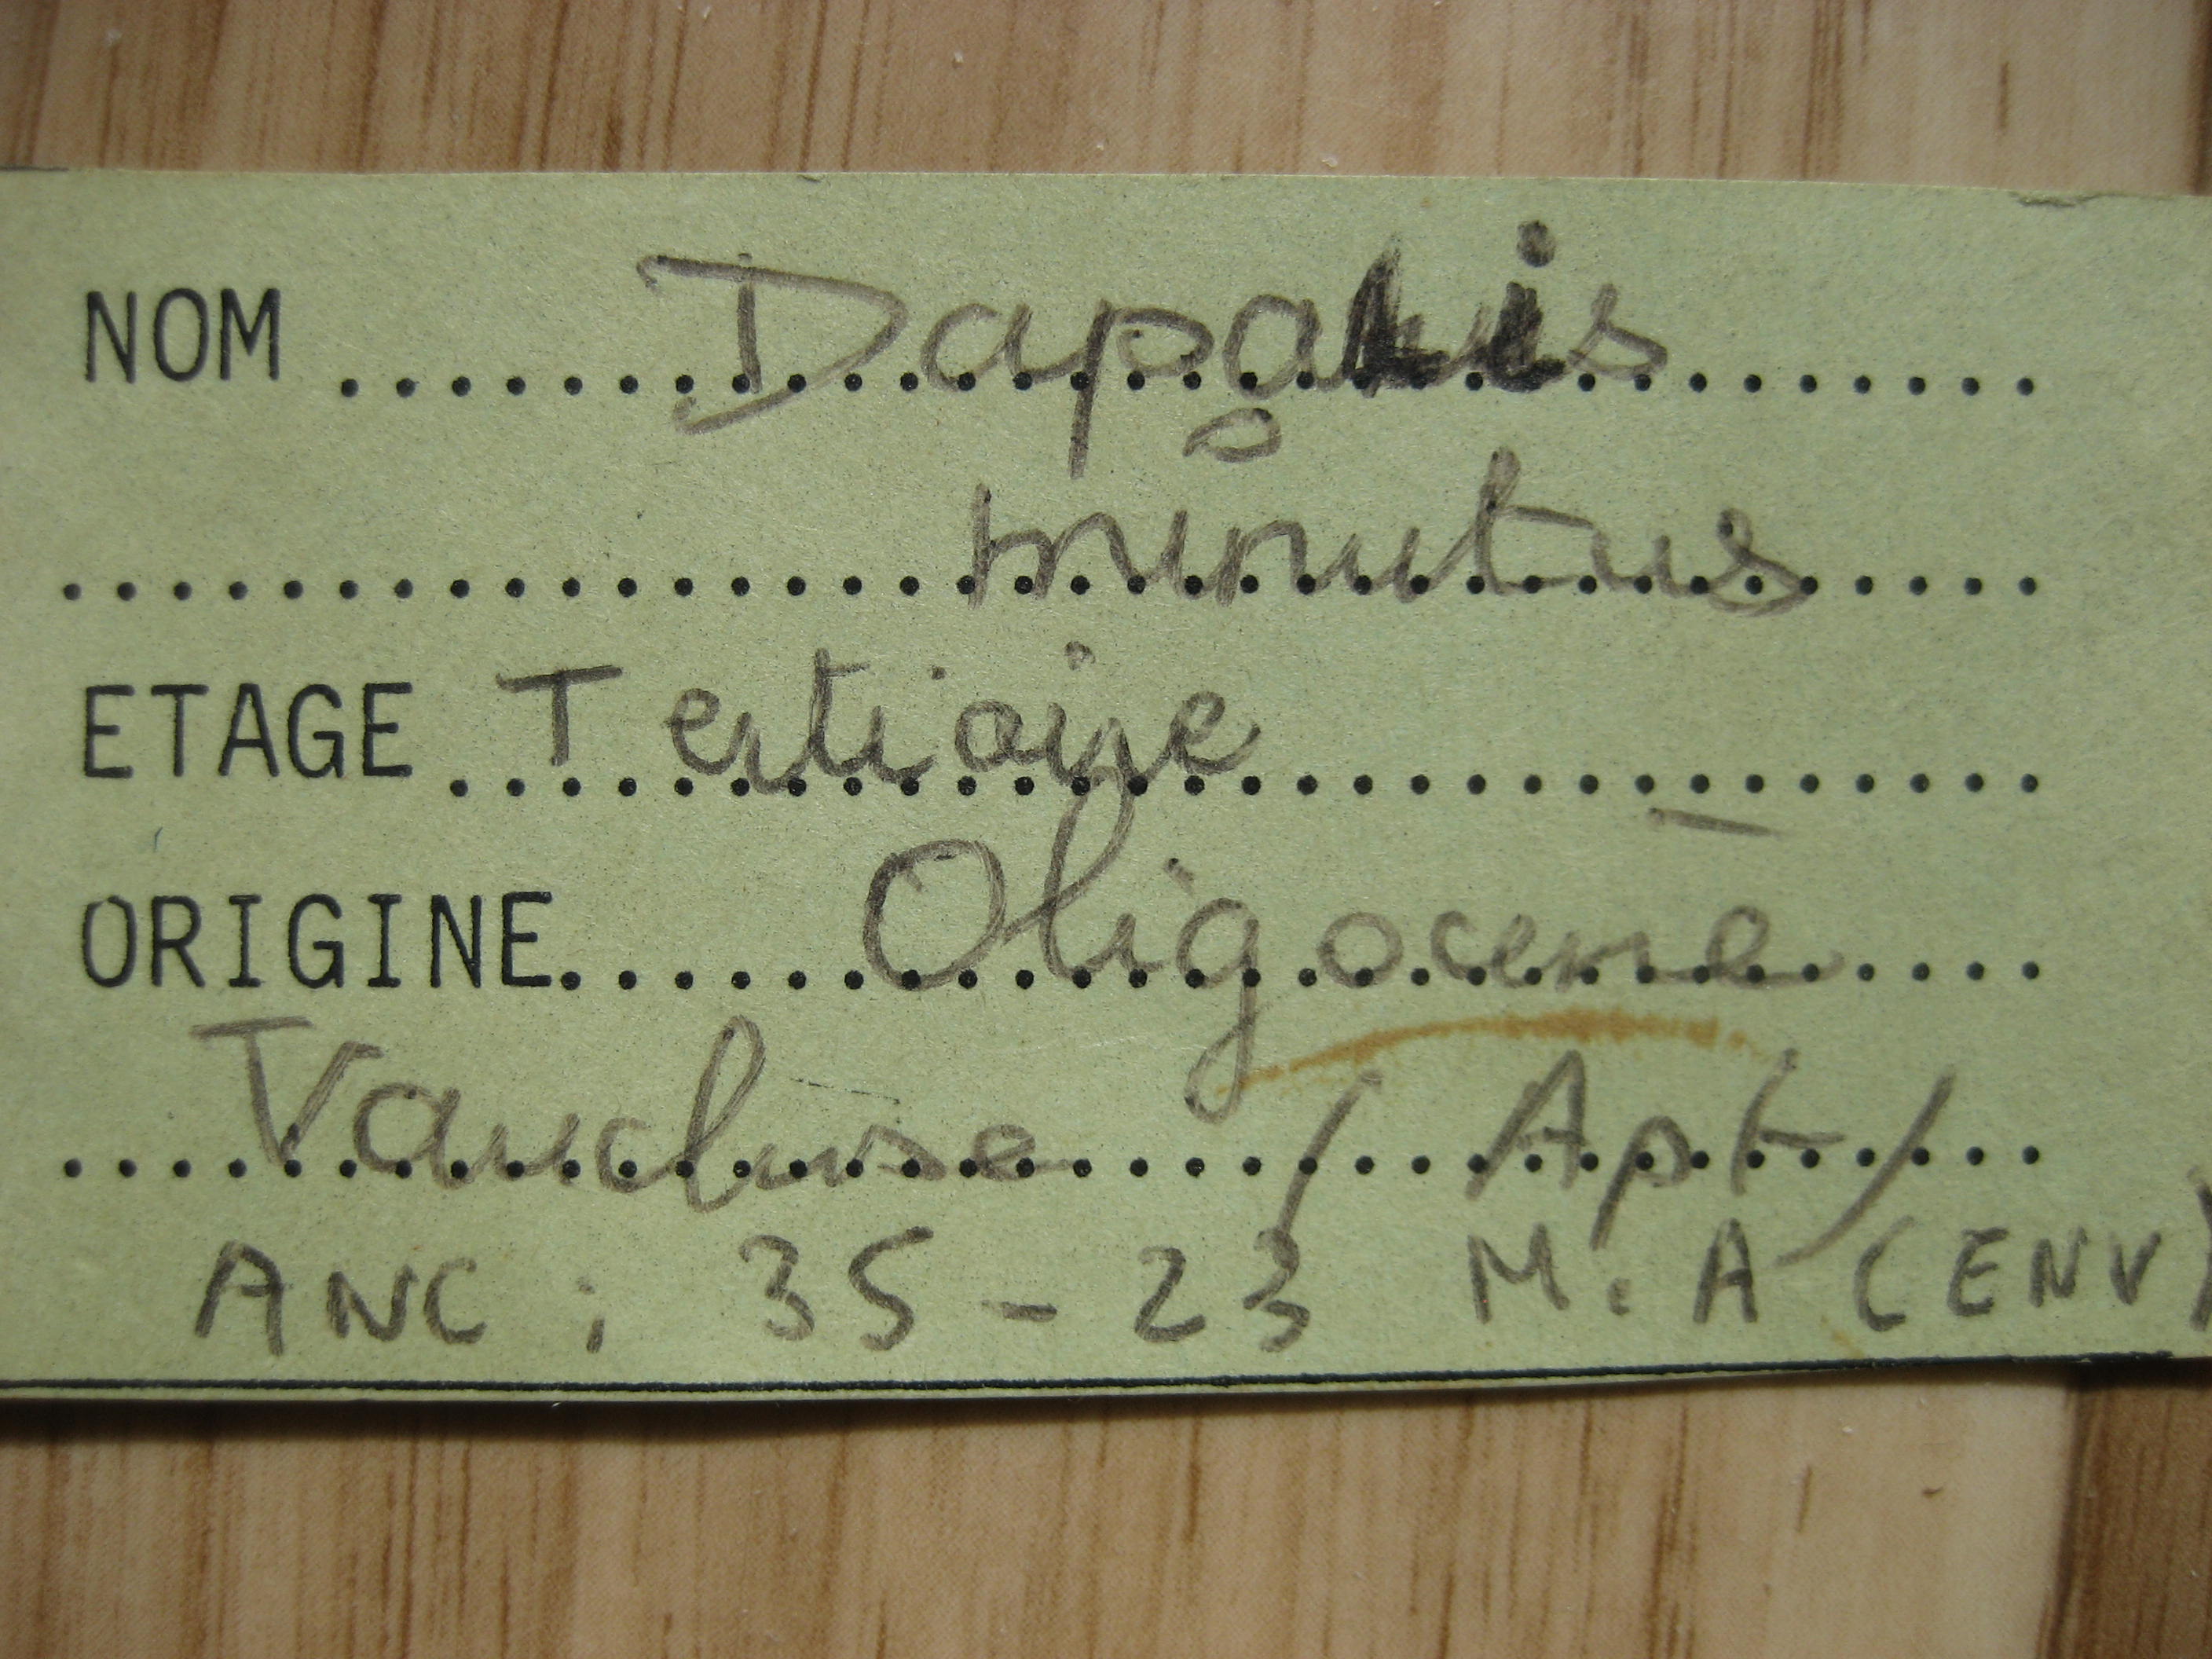 NOM Dapalis
minutus
ETAGE Tertiaire
ORIGINE Oligocene
Vaucluse / Apt /
ANC : 35 - 23 M.A (ENV)